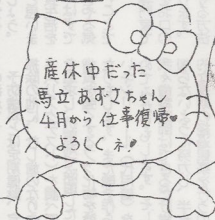 産休中だった
馬立あずさちゃん
4月から仕事復帰♥
よろしくネ!